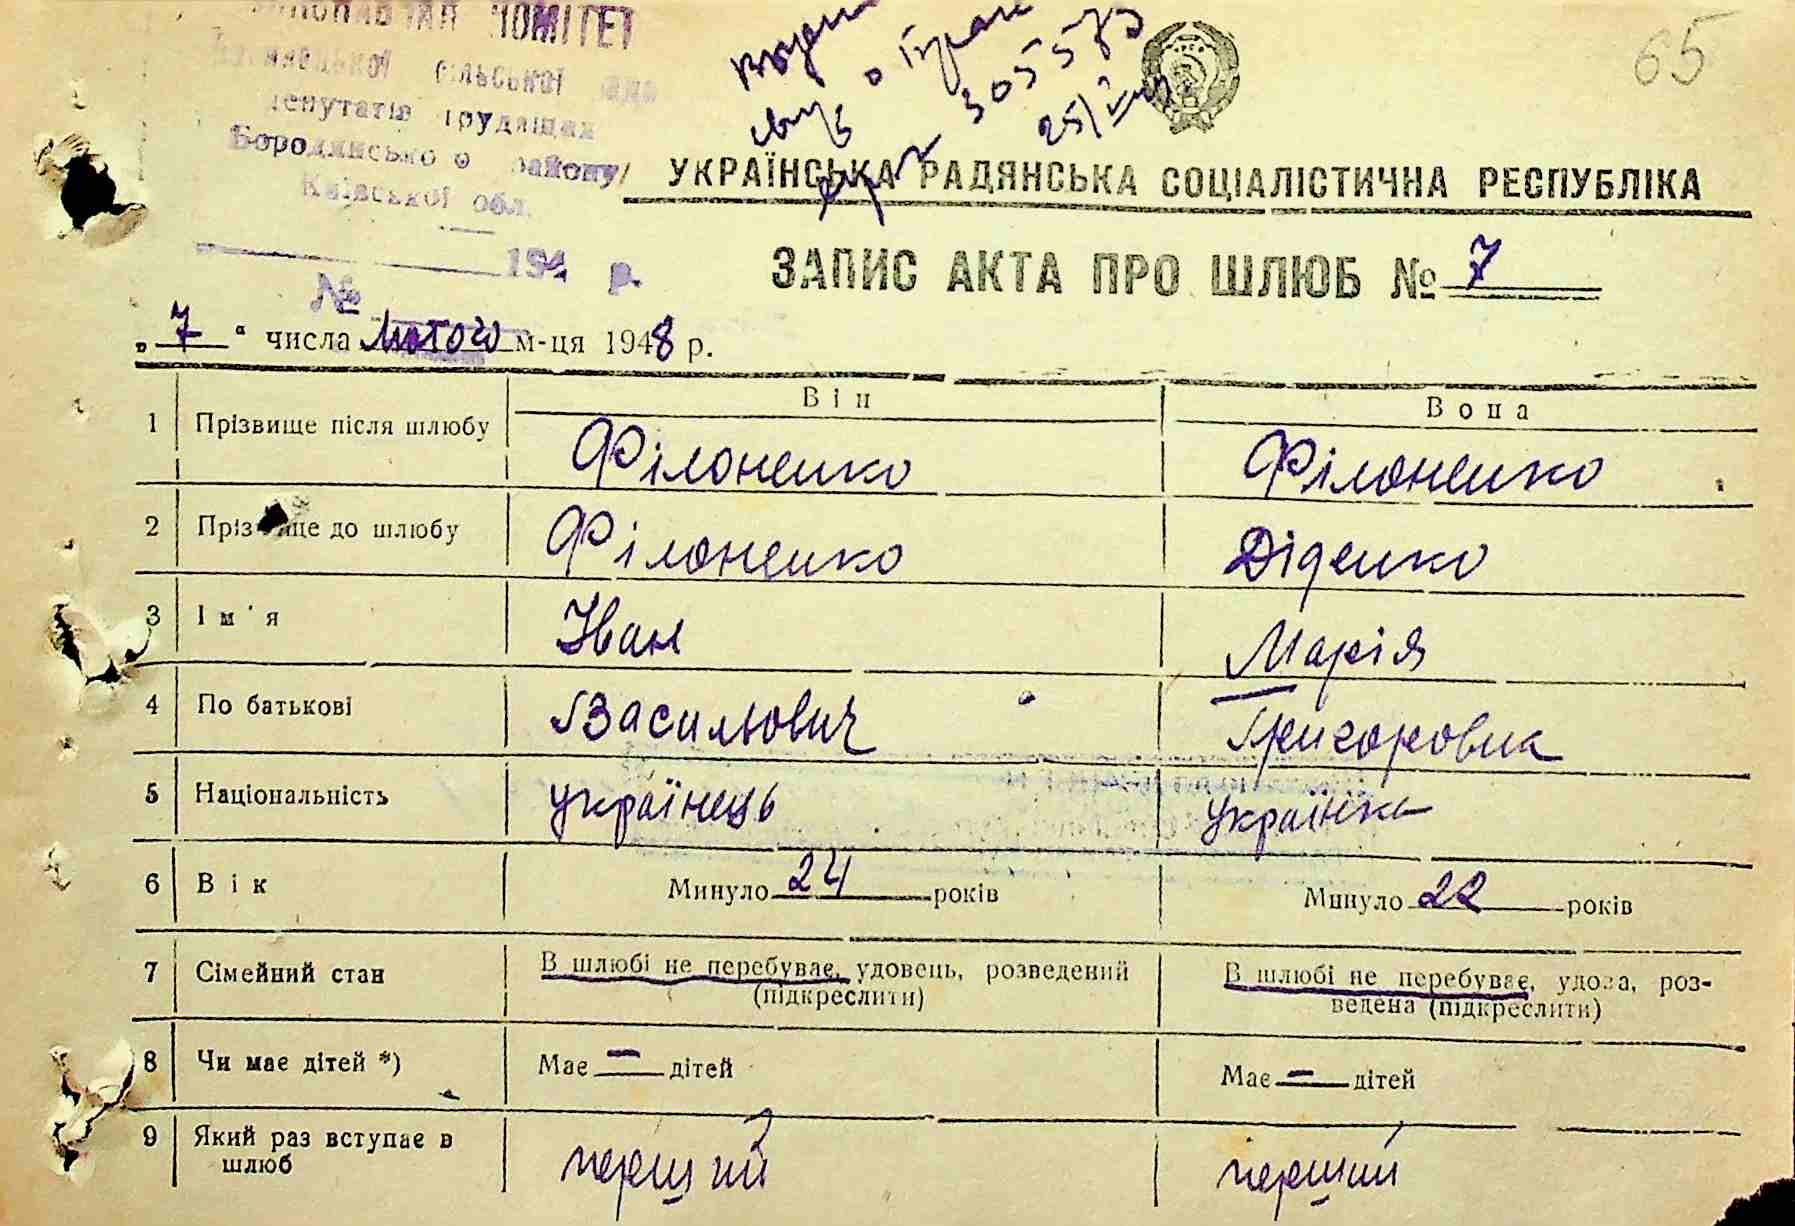 КОМІТЕТ
сільської
депутатів трудящих
Бородянського району
Київської обл.
194 р.
№
305573
65
УКРАЇНСЬКА РАДЯНСЬКА СОЦІАЛІСТИЧНА РЕСПУБЛІКА
ЗАПИС АКТА ПРО ШЛЮБ № 7
„7“ числа Лютого м-ця 1948 р.
Він Вона
1 Прізвище після шлюбу Філоненко Філоненко
2 Прізвище до шлюбу Філоненко Діденко
3 Ім'я Іван Марія
4 По батькові Васильович Григоровна
5 Національність українець українка
6 Вік Минуло 24 років Минуло 22 років
7 Сімейний стан В шлюбі не перебуває, удовець, розведений (підкреслити) В шлюбі не перебуває, удова, роз-
ведена (підкреслити)
8 Чи має дітей *) Має — дітей Має — дітей
9 Який раз вступає в шлюб перший перший